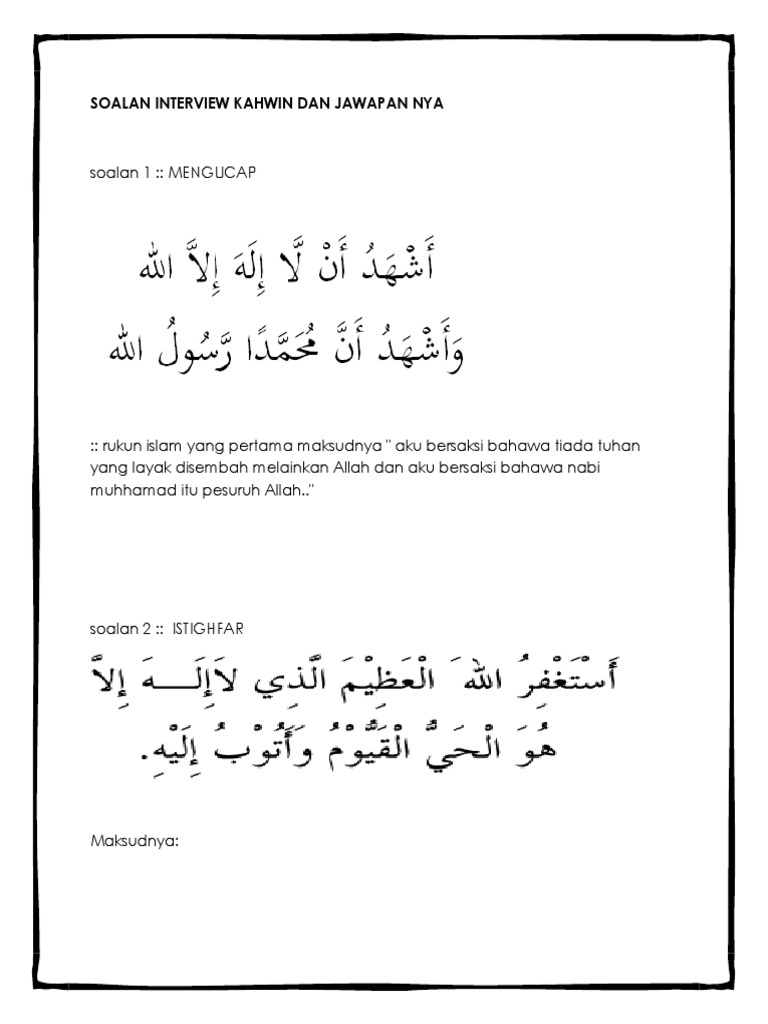 SOALAN INTERVIEW KAHWIN DAN JAWAPAN NYA
soalan 1 :: MENGUCAP
أَشْهَدُ أَنْ لَّا إِلَهَ إِلاَّ الله
وَأَشْهَدُ أَنَّ مُحَمَّدًا رَّسُولُ الله
:: rukun islam yang pertama maksudnya " aku bersaksi bahawa tiada tuhan
yang layak disembah melainkan Allah dan aku bersaksi bahawa nabi
muhhamad itu pesuruh Allah.."
soalan 2 :: ISTIGHFAR
أَسْتَغْفِرُ اللهَ الْعَظِيْمَ الَّذِي لاَإِلَـــهَ إِلاَّ
هُوَ الْحَيُّ الْقَيُّوْمُ وَأَتُوْبُ إِلَيْهِ.
Maksudnya: